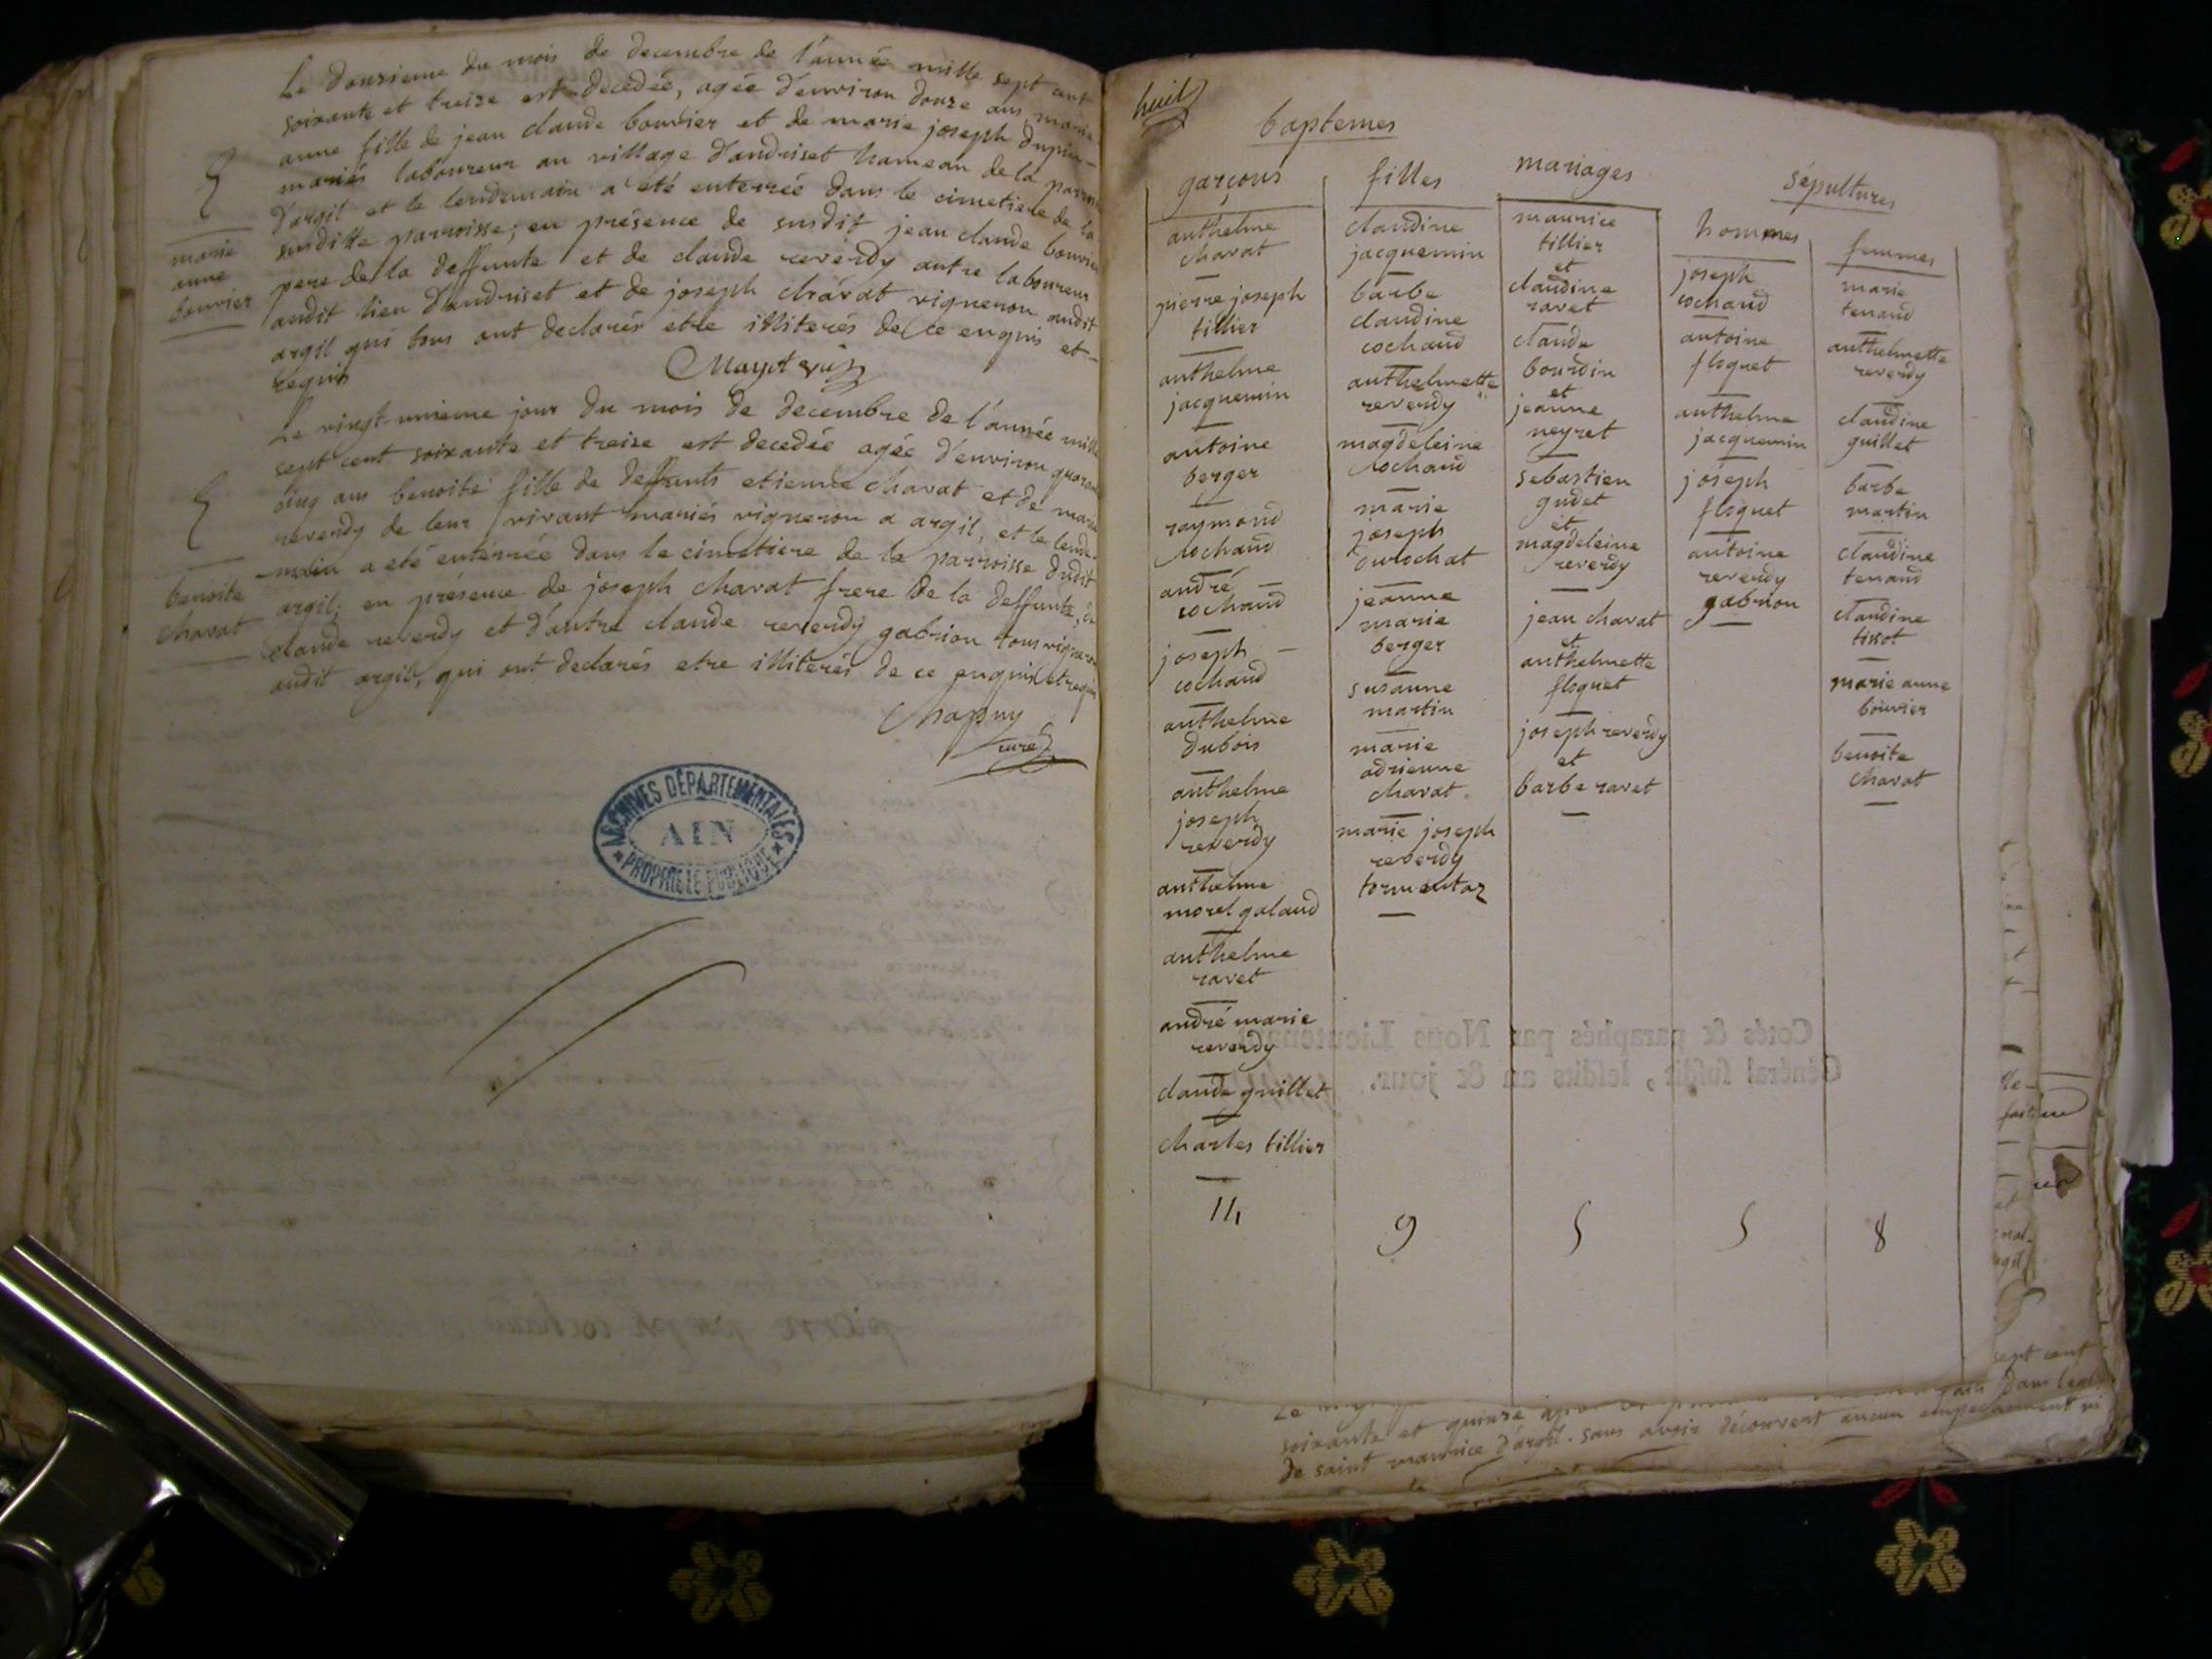 Le dousieme du mois de decembre de l'année mille sept cent
soixante et treize est decedée, agée d'environ douze ans marie
anne fille de jean claude bouvier et de marie joseph
mariés laboureur au village d'andriset hameau de la
d'argil et le lendemain a été enterrée dans le cimetiere de la
susditte parroisse; en présence de susdit jean claude bouvier
pere de la deffunte et de claude reverdy autre laboureur
audit lieu d'andriset et de joseph chavat vigneron audit
argil qui tous ont declarés etre illiterés de ce enquis et
requis
marie
anne
bouvier
Le vingt-unieme jour du mois de decembre de l'année mille
sept cent soixante et treize est decedée agée d'environ
cinq ans benoite fille de deffunts etienne chavat et de marie
reverdy de leur vivant mariés vigneron a argil, et le lende-
main a eté enterrée dans le cimetiere de la parroisse dudit
argil; en présence de joseph chavat frere de la deffunte, de
claude reverdy et d'autre claude reverdy gabrion tous vignerons
audit argil, qui ont declarés etre illiterés de ce enquis et requis
benoite
chavat
Chapuy
curé
ARCHIVES DÉPARTEMENTALES
AIN
PROPRIÉTÉ PUBLIQUE
huit
baptemes
garçons
anthelme
chavat
pierre joseph
tillier
anthelme
jacquemin
antoine
berger
raymond
cochaud
andré
cochaud
joseph
cochaud
anthelme
dubois
anthelme
joseph
reverdy
anthelme
morel galaud
anthelme
ravet
andré marie
reverdy
claude guillet
charles tillier
14
filles
claudine
jacquemin
barbe
claudine
cochaud
anthelmette
reverdy
magdeleine
cochaud
marie
joseph
curlochat
jeanne
marie
berger
susanne
martin
marie
adrienne
chavat
marie joseph
reverdy
tormentaz
9
mariages
maurice
tillier
et
claudine
ravet
claude
bourdin
et
jeanne
neyret
sebastien
gudet
et
magdeleine
reverdy
jean chavat
et
anthelmette
floquet
joseph reverdy
et
barbe ravet
5
sépultures
hommes
joseph
cochaud
antoine
floquet
anthelme
jacquemin
joseph
floquet
antoine
reverdy
gabrion
5
femmes
marie
tenaud
anthelmette
reverdy
claudine
guillet
barbe
martin
claudine
tenaud
claudine
tissot
marie anne
bouvier
benoite
chavat
8
Cotés & paraphés par Nous Lieutenant
Général susdit, lesdits an & jour.
sept cent
soixante et quinze
de saint maurice d'argil. sans avoir découvert aucun empechement ni